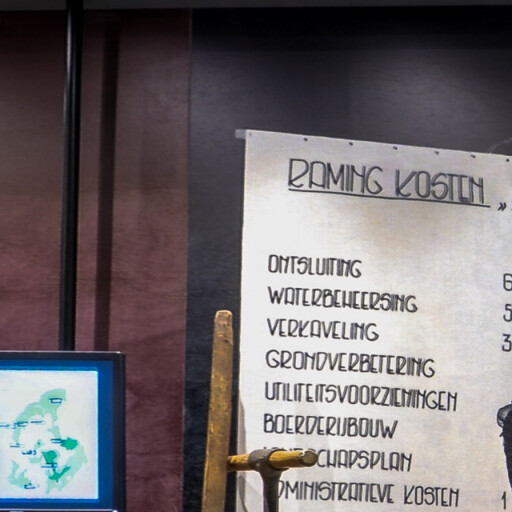 RAMING KOSTEN „
ONTSLUITING 6
WATERBEHEERSING 5
VERKAVELING 3
GRONDVERBETERING
UTILITEITSVOORZIENINGEN
BOERDERIJBOUW
SCHAPSPLAN
DMINISTRATIEVE KOSTEN 1